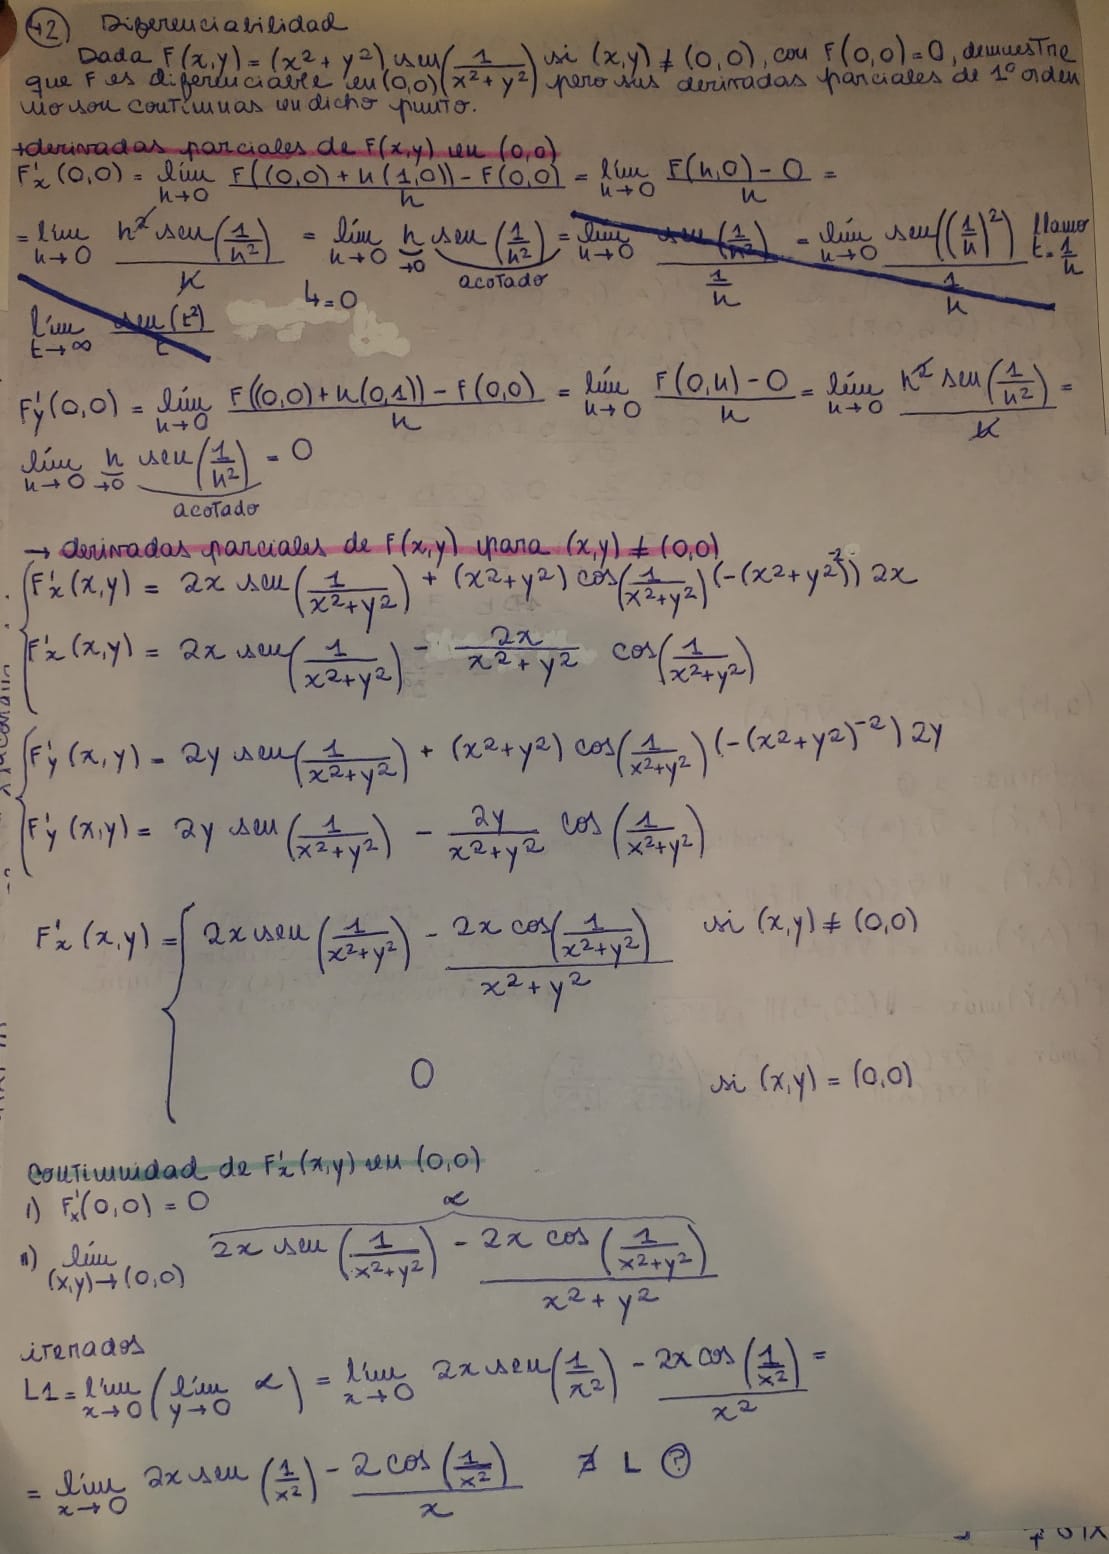 42) Diferenciabilidad
Dada F(x,y) = (x² + y²) sen(1/(x²+y²)) si (x,y) ≠ (0,0), con F(0,0) = 0, demuestre
que F es diferenciable en (0,0) pero sus derivadas parciales de 1º orden
no son continuas en dicho punto.
→ derivadas parciales de F(x,y) en (0,0)
F'x (0,0) = lím h→0 (F((0,0) + h(1,0)) - F(0,0))/h = lím h→0 (F(h,0) - 0)/h =
= lím h→0 (h² sen(1/h²))/h = lím h→0 h sen(1/h²) = lím h→0 sen(1/h²)/(1/h) = lím h→0 sen((1/h)²)/(1/h) llamo t = 1/h
→0 acotado
↳ = 0
lím t→∞ sen(t²)/t
F'y (0,0) = lím h→0 (F((0,0) + h(0,1)) - F(0,0))/h = lím h→0 (F(0,h) - 0)/h = lím h→0 (h² sen(1/h²))/h =
lím h→0 h sen(1/h²) = 0
→0 acotado
→ derivadas parciales de F(x,y) para (x,y) ≠ (0,0)
F'x (x,y) = 2x sen(1/(x²+y²)) + (x²+y²) cos(1/(x²+y²)) (-(x²+y²)⁻²) 2x
F'x (x,y) = 2x sen(1/(x²+y²)) - 2x/(x²+y²) cos(1/(x²+y²))
F'y (x,y) = 2y sen(1/(x²+y²)) + (x²+y²) cos(1/(x²+y²)) (-(x²+y²)⁻²) 2y
F'y (x,y) = 2y sen(1/(x²+y²)) - 2y/(x²+y²) cos(1/(x²+y²))
F'x (x,y) = { 2x sen(1/(x²+y²)) - (2x cos(1/(x²+y²)))/(x²+y²) si (x,y) ≠ (0,0)
0 si (x,y) = (0,0)
Continuidad de F'x (x,y) en (0,0)
I) F'x(0,0) = 0
α
II) lím (x,y)→(0,0) 2x sen(1/(x²+y²)) - (2x cos(1/(x²+y²)))/(x²+y²)
iterados
L1 = lím x→0 (lím y→0 α) = lím x→0 2x sen(1/x²) - (2x cos(1/x²))/x² =
= lím x→0 2x sen(1/x²) - (2 cos(1/x²))/x ∄ L ?